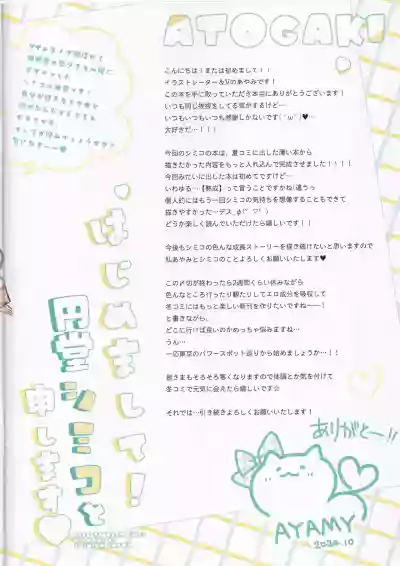 ATOGAKI
こんにちは！または初めまして！！
イラストレーター&Vのあやみです！
この本を手に取っていただき本当にありがとうございます！
いつも同じ挨拶をしてる気がするけど…
いつもいつもいつも感謝しかないです(´ω`)♥…
大好きだ…！！！
今回のシミコの本は、夏コミに出した薄い本から
描きたかった内容をもっと入れ込んで完成させました！！！！
今回みたいに出した本は初めてですけど…
いわゆる…【熟成】って言うことですかね(違うっ
個人的にはもう一回シミコの気持ちを想像することもできて
描きやすかった…デス
どうか楽しく読んでいただけたら嬉しいです！！
今後もシミコの色んな成長ストーリーを描き続けたいと思いますので
私あやみとシミコのことよろしくお願いいたします♥
この〆切が終わったら2週間くらい休みながら
色んなところ行ったり観たりしてエロ成分を吸収して
冬コミにはもっと楽しい新刊を作りたいですね~~！
と書きながら、
どこに行けば良いのかめっちゃ悩みますね…
うん…
一応東京のパワースポット巡りから始めましょうか…！！
皆さまもそろそろ寒くなりますので体調とか気を付けて
冬コミで元気に会えたら嬉しいです☆
それでは…引き続きよろしくお願いいたします！
はじめまして！
円堂シミコと
申します♡
ありがとー!!
AYAMY
2024.10